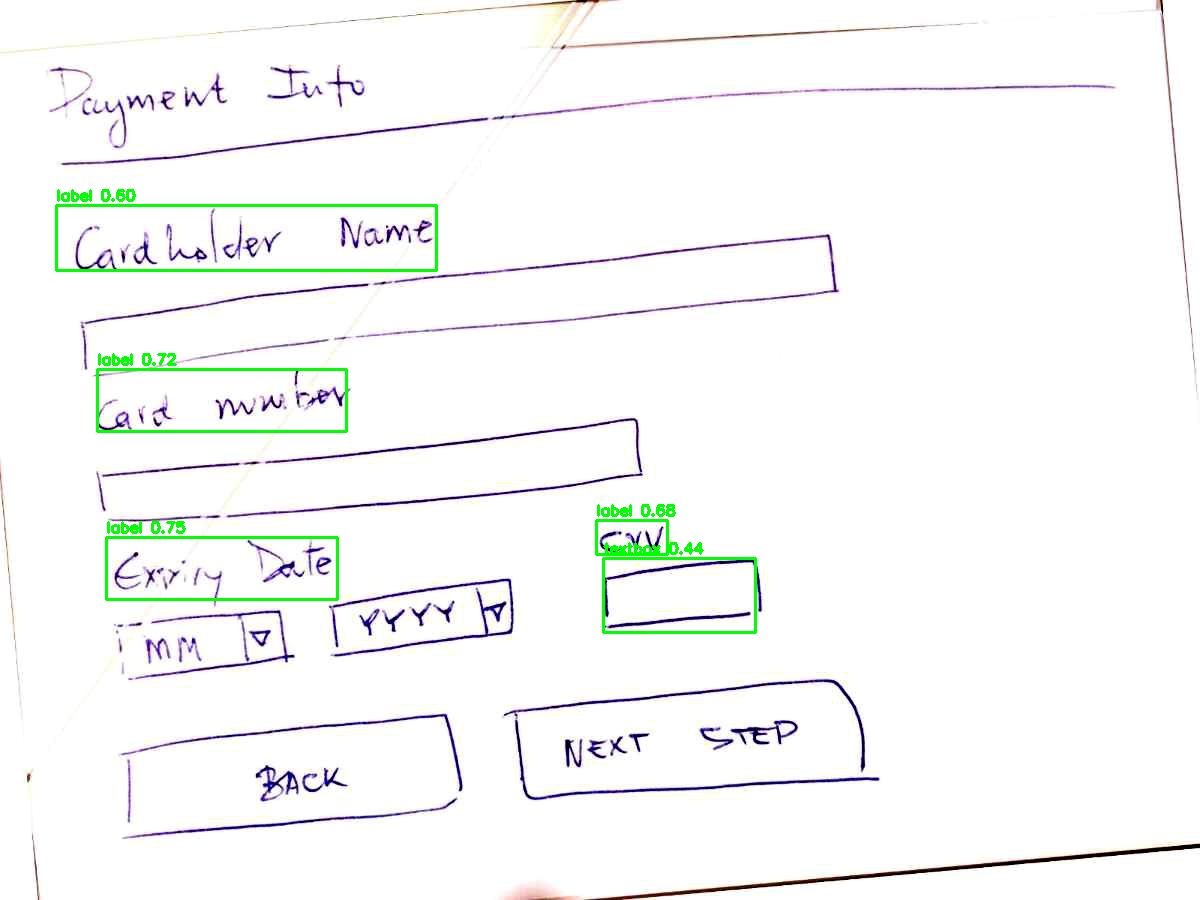 Payment Info
label 0.60
Cardholder Name
label 0.72
Card number
label 0.75
Expiry Date
label 0.68
CVV
textbox 0.44
MM
YYYY
BACK
NEXT STEP